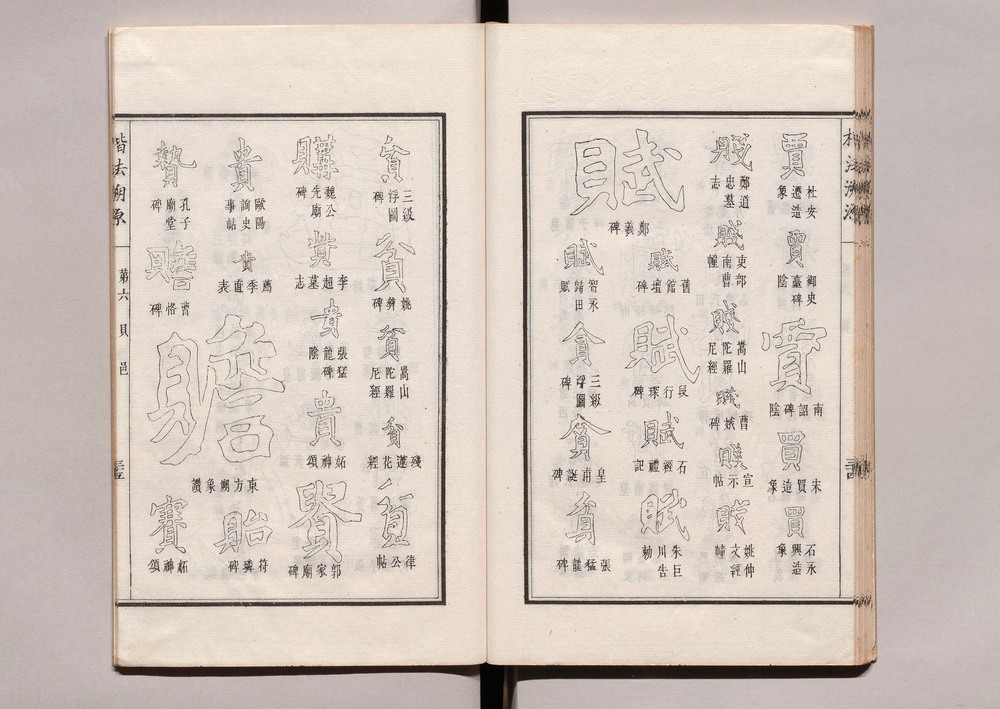 賈 杜安遷造象
賈 御史臺碑陰
賣 南詔碑陰
買 宋買造象
買 石永興造象
賤 鄭道忠墓志
賤 吏部南曹幢
賤 嵩山陀羅尼經
賤 曹娥碑
賤 宣示帖
賤 姚仲文經幢
賦 鄭羲碑
賦 舊館壇碑
賦 行琛碑
賦 石經禮記
賦 朱巨川告勅
賦 智永歸田賦
貪 三級浮圖碑
貪 皇甫誕碑
貧 張猛龍碑
貧 三級浮圖碑
貧 姚彝碑
貧 嵩山陀羅尼經
貧 殘蓮花經
貧 律公帖
購 魏公先廟碑
貴 李超墓志
貴 張猛龍碑陰
貴 妬神頌
郭家廟碑
貴 歐陽詢史事帖
貴 薦季直表
贍 東方朔象讚
貽 符璘碑
贄 孔子廟堂碑
贍 曹恪碑
賽 妬神頌
楷法溯源 第六 貝 邑